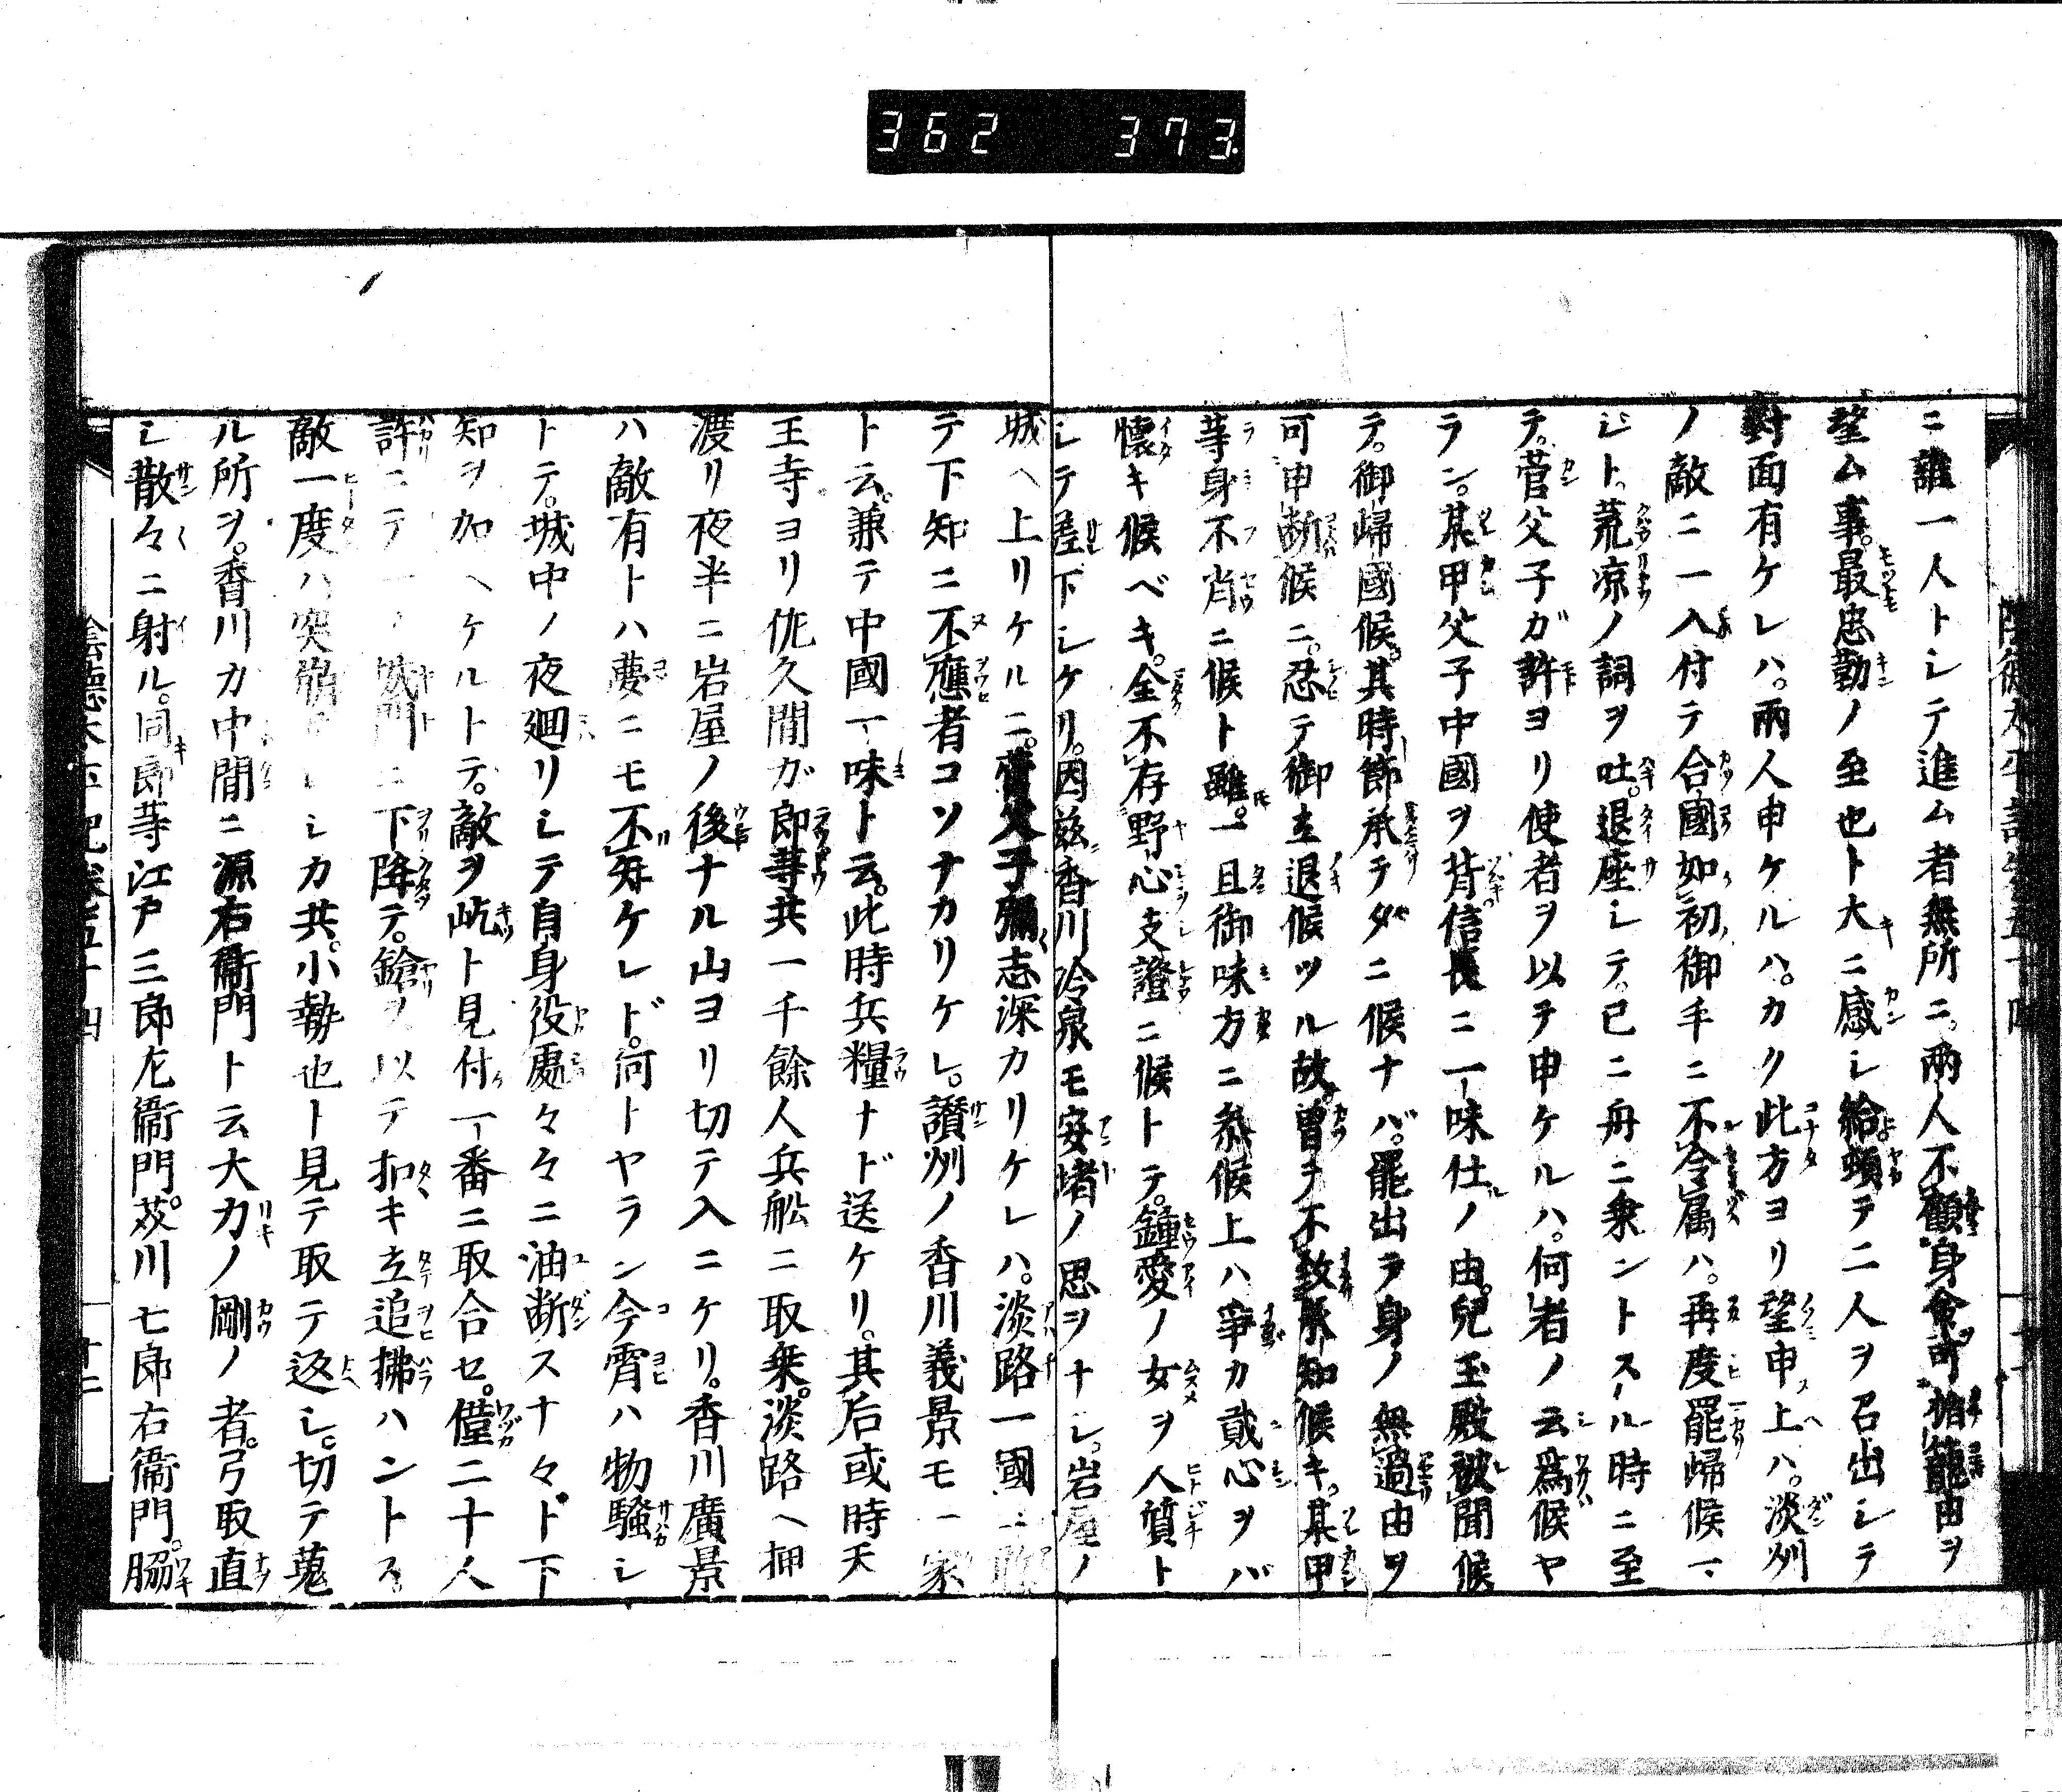 362 373
ニ誰一人トシテ進ム者無所ニ。兩人不顧身命可楯籠由ヲ
望ム事。最忠勤ノ至也ト大ニ感シ給頓テ二人ヲ召出シテ
對面有ケレハ。兩人申ケルハ。カク此方ヨリ望申上ハ。淡州
ノ敵ニ一入付テ合國如初御手ニ不令属ハ。再度罷歸候マ
ジト。荒凉ノ詞ヲ吐。退座シテ。已ニ舟ニ乗ントスル時ニ至
テ。菅父子ガ許ヨリ使者ヲ以テ申ケルハ。何者ノ云爲候ヤ
ラン。某甲父子中國ヲ背信長ニ一味仕ノ由。兒玉殿被聞候
テ。御歸國候。其時節承テダニ候ナバ。罷出テ身ノ無過由ヲ
可申断候ニ。忍テ御立退候ツル故。曽テ不致承知候キ。某甲
等身不肖ニ候ト雖。一且御味方ニ參候上ハ爭カ貳心ヲバ
懐キ候ベキ。全不存野心支證ニ候トテ。鍾愛ノ女ヲ人質ト
シテ差下シケリ。因玆香川冷泉モ安堵ノ思ヲナシ。岩屋ノ
城ヘ上リケルニ。菅父子彌志深カリケレハ。淡路一國ニ
テ下知ニ不應者コソナカリケレ。讃州ノ香川義景モ一家
ト云。兼テ中國一味ト云。此時兵糧ナド送ケリ。其后或時天
王寺ヨリ佐久間ガ郎等共一千餘人兵舩ニ取乗。淡路ヘ押
渡リ夜半ニ岩屋ノ後ナル山ヨリ切テ入ニケリ。香川廣景
ハ敵有トハ夢ニモ不知ケレド。何トヤラン今宵ハ物騒シ
トテ。城中ノ夜廻リシテ自身役處々々ニ油断スナ々ド下
知ヲ加ヘケルトテ。敵ヲ屹ト見付一番ニ取合セ。僅二十人
許ニテ一ノ城門ニ下降テ。鎗ヲ以テ扣キ立追拂ハントス。
敵一度ハ突崩レシカ共。小勢也ト見テ取テ返シ。切テ蒐
ル所ヲ。香川カ中間ニ源右衞門ト云大力ノ剛ノ者。弓取直
シ散々ニ射ル。同郎等江戸三郎左衞門。荻川七郎右衞門。脇
陰徳太平記卷五十四
十二